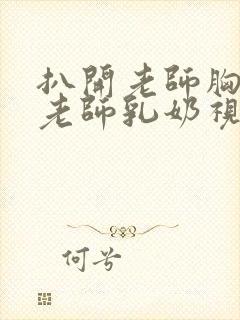 扒開老師胸
老師乳奶視
何兮